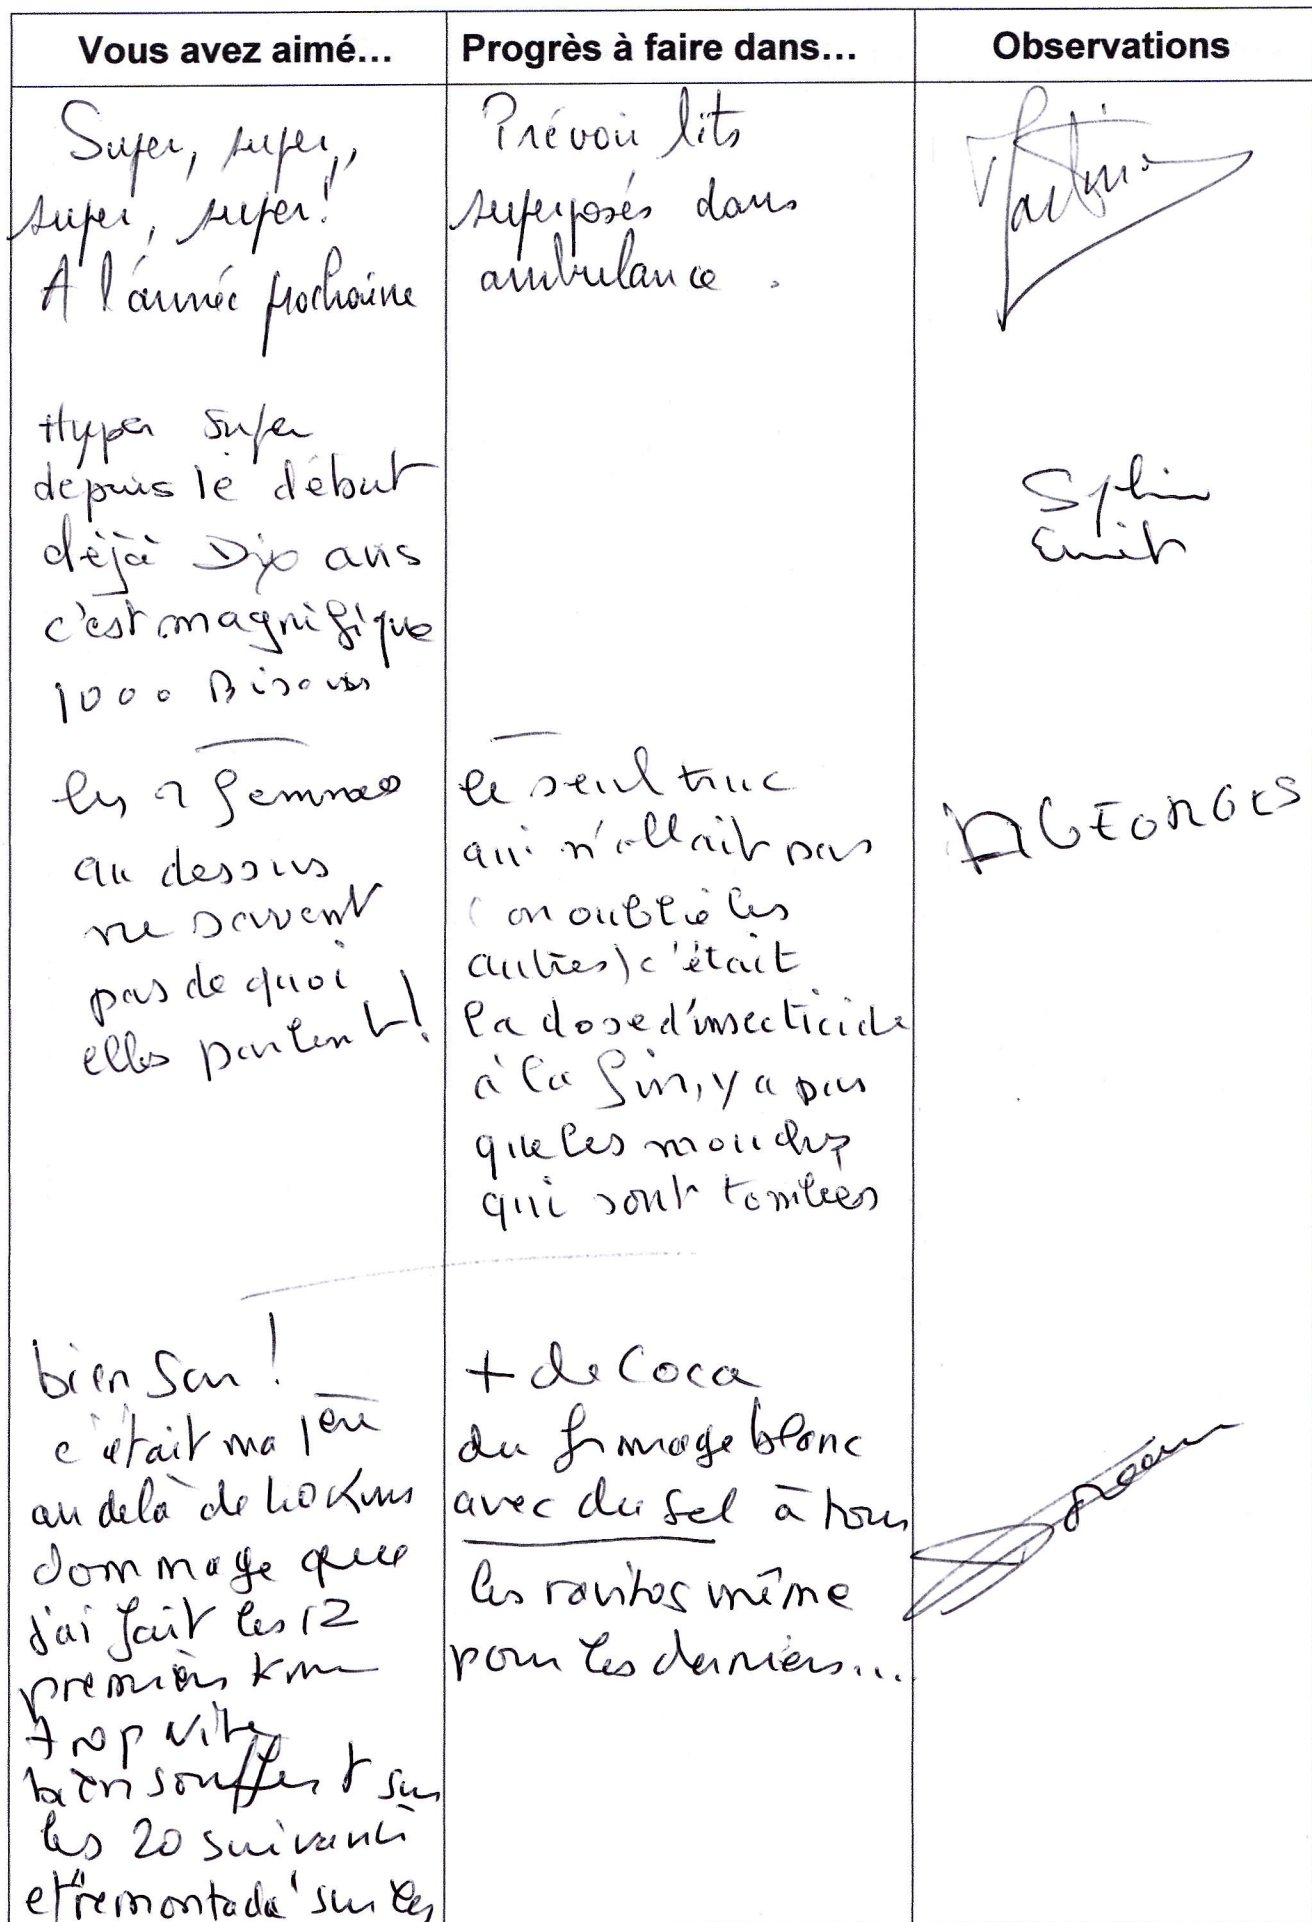 Vous avez aimé...
Progrès à faire dans...
Observations
Super, super,
super, super!
A l'année prochaine
Prévoir lits
superposés dans
ambulance.
Hyper super
depuis le début
déjà Dix ans
c'est magnifique
1000 Bisous
les 2 femmes
au dessus
ne savent
pas de quoi
elles parlent!
le seul truc
qui n'allait pas
(on oublie les
autres) c'était
la dose d'insecticide
à la fin, y a pas
que les mouches
qui sont tombées
GEORGES
bien sur!
c'était ma 1ère
au delà de 40 Kms
dommage que
j'ai fait les 12
premiers km
trop vite
bien souffert sur
les 20 suivants
et "remontada" sur les
+ de Coca
du fromage blanc
avec du sel à tous
les ravitos même
pour les derniers...